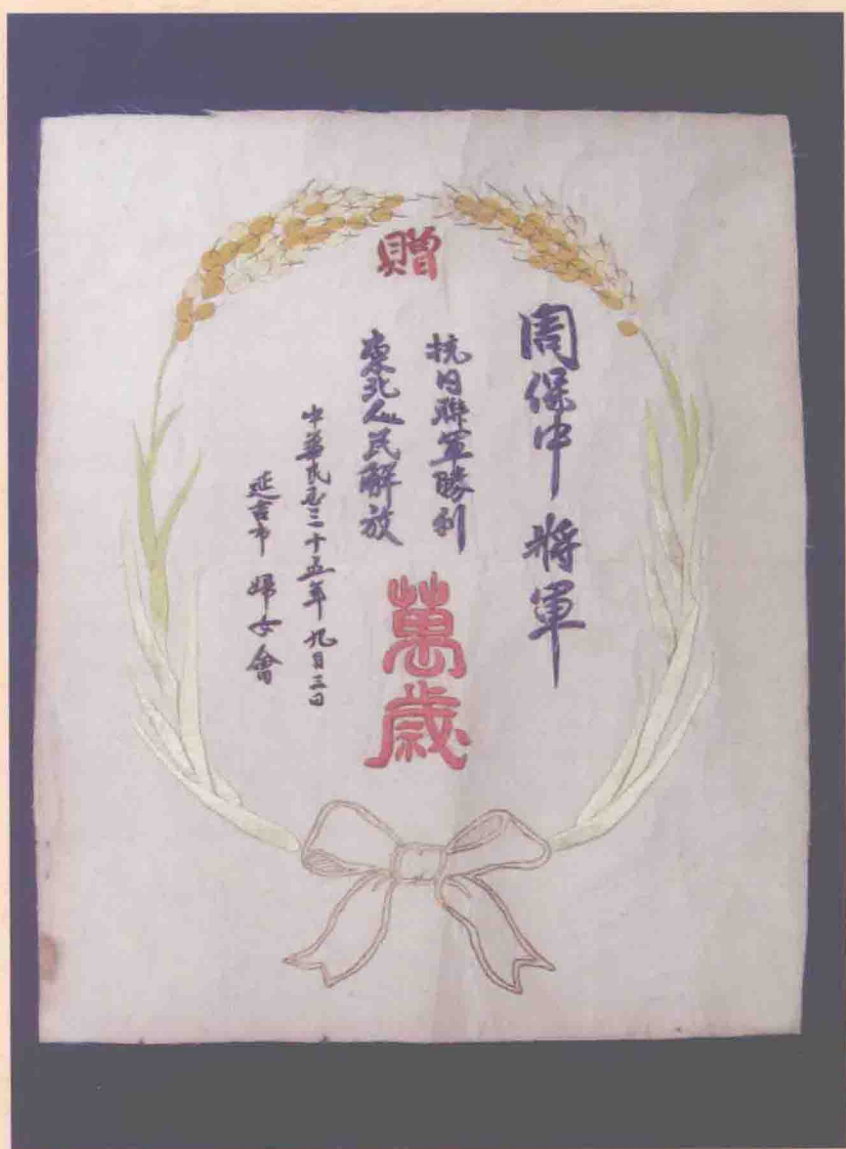 贈
周保中 將軍
抗日聯軍勝利
東北人民解放
萬歲
中華民國三十五年 九月三日
延吉市 婦女會